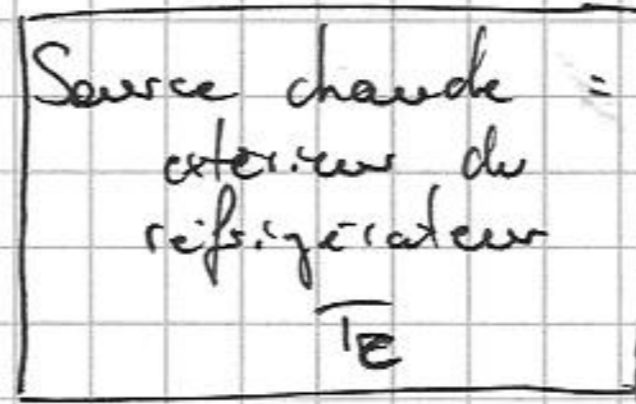 Source chaude =
extérieur du
réfrigérateur
TE